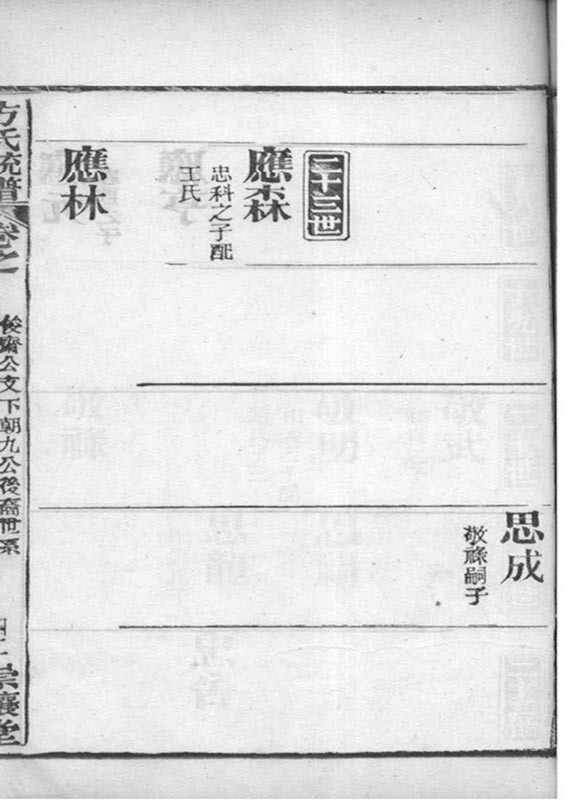 二十三世
應森
忠科之子配
王氏
應林
思成
敬祿嗣子
方氏統譜
卷之
後齋公支下朝九公後裔世系
宗襄堂